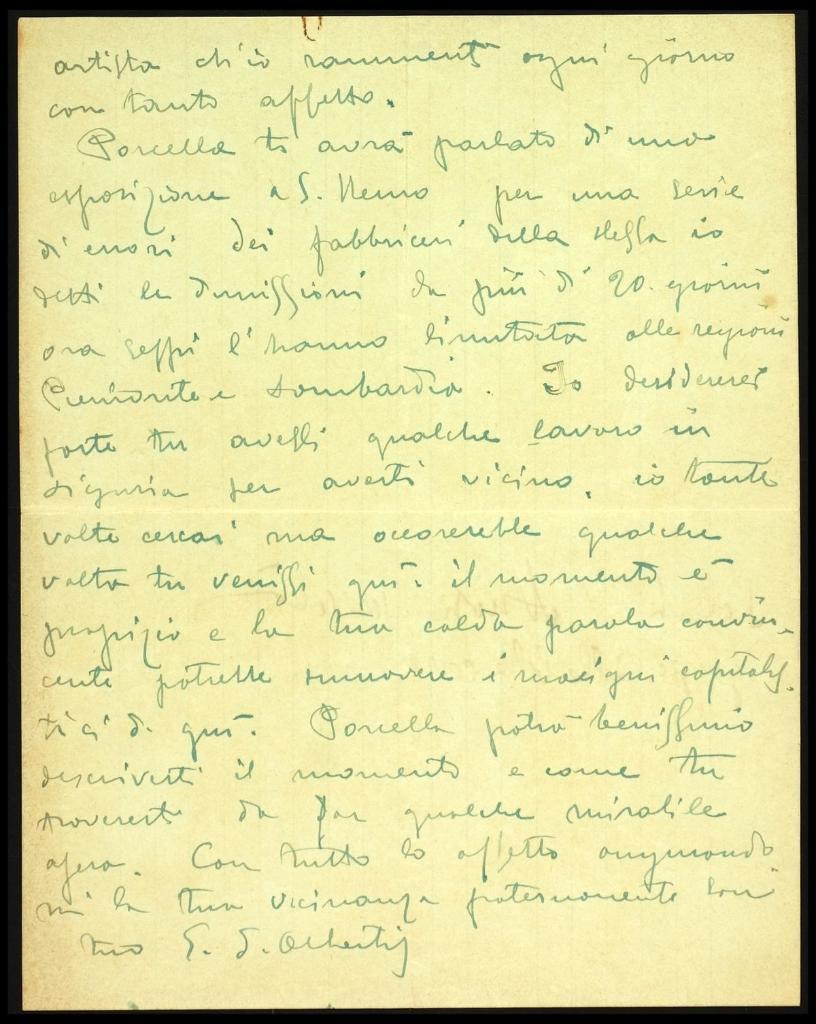 artista ch'io rammento ogni giorno
con tanto affetto.
Porcella ti avrà parlato di una
esposizione a S. Remo per una serie
di errori dei fabbricieri della stessa io
detti le dimissioni da più di 20. giorni
ora seppi l'hanno limitata alle regioni
Piemonte e Lombardia. Io desidererei
forte tu avessi qualche lavoro in
Liguria per averti vicino, io tante
volte cercai ma occorerebbe qualche
volta tu venissi quì. il momento è
propizio e la tua calda parola convin-
cente potrebbe smuovere i macigni capitalis-
tici di quì. Porcella potrà benissimo
descriverti il momento e come tu
troveresti da far qualche mirabile
opera. Con tutto lo affetto augurando
mi la tua vicinanza fraternamente sono
tuo